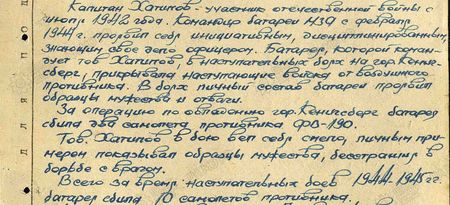 Капитан Хатипов - участник отечественной войны с
июля 1942 года. Командир батареи МЗА с февраля
1944 г. проявил себя инициативным, дисциплинированным,
знающим свое дело офицером. Батарея, которой коман-
дует тов Хатипов, в наступательных боях на гор. Кениг-
сберг, прикрывала наступающие войска от воздушного
противника. В боях личный состав батареи проявил
образцы мужества и отваги.
За операцию по овладению гор. Кенигсберг батарея
сбила два самолета противника ФВ-190.
Тов. Хатипов в бою вел себя смело, личным при-
мером показывал образцы мужества, бесстрашия в
борьбе с врагом.
Всего за время наступательных боев 1944-1945 гг.
батарея сбила 10 самолетов противника.
для под